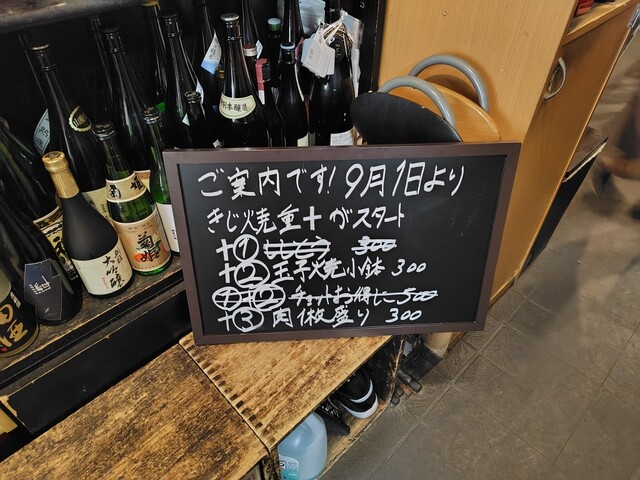 ご案内です! 9月1日より
きじ焼重十がスタート
+① 300
+② 玉子焼小鉢 300
①+② チョットお得に 500
+③ 肉1枚盛り 300
本醸造
菊姫
大吟醸